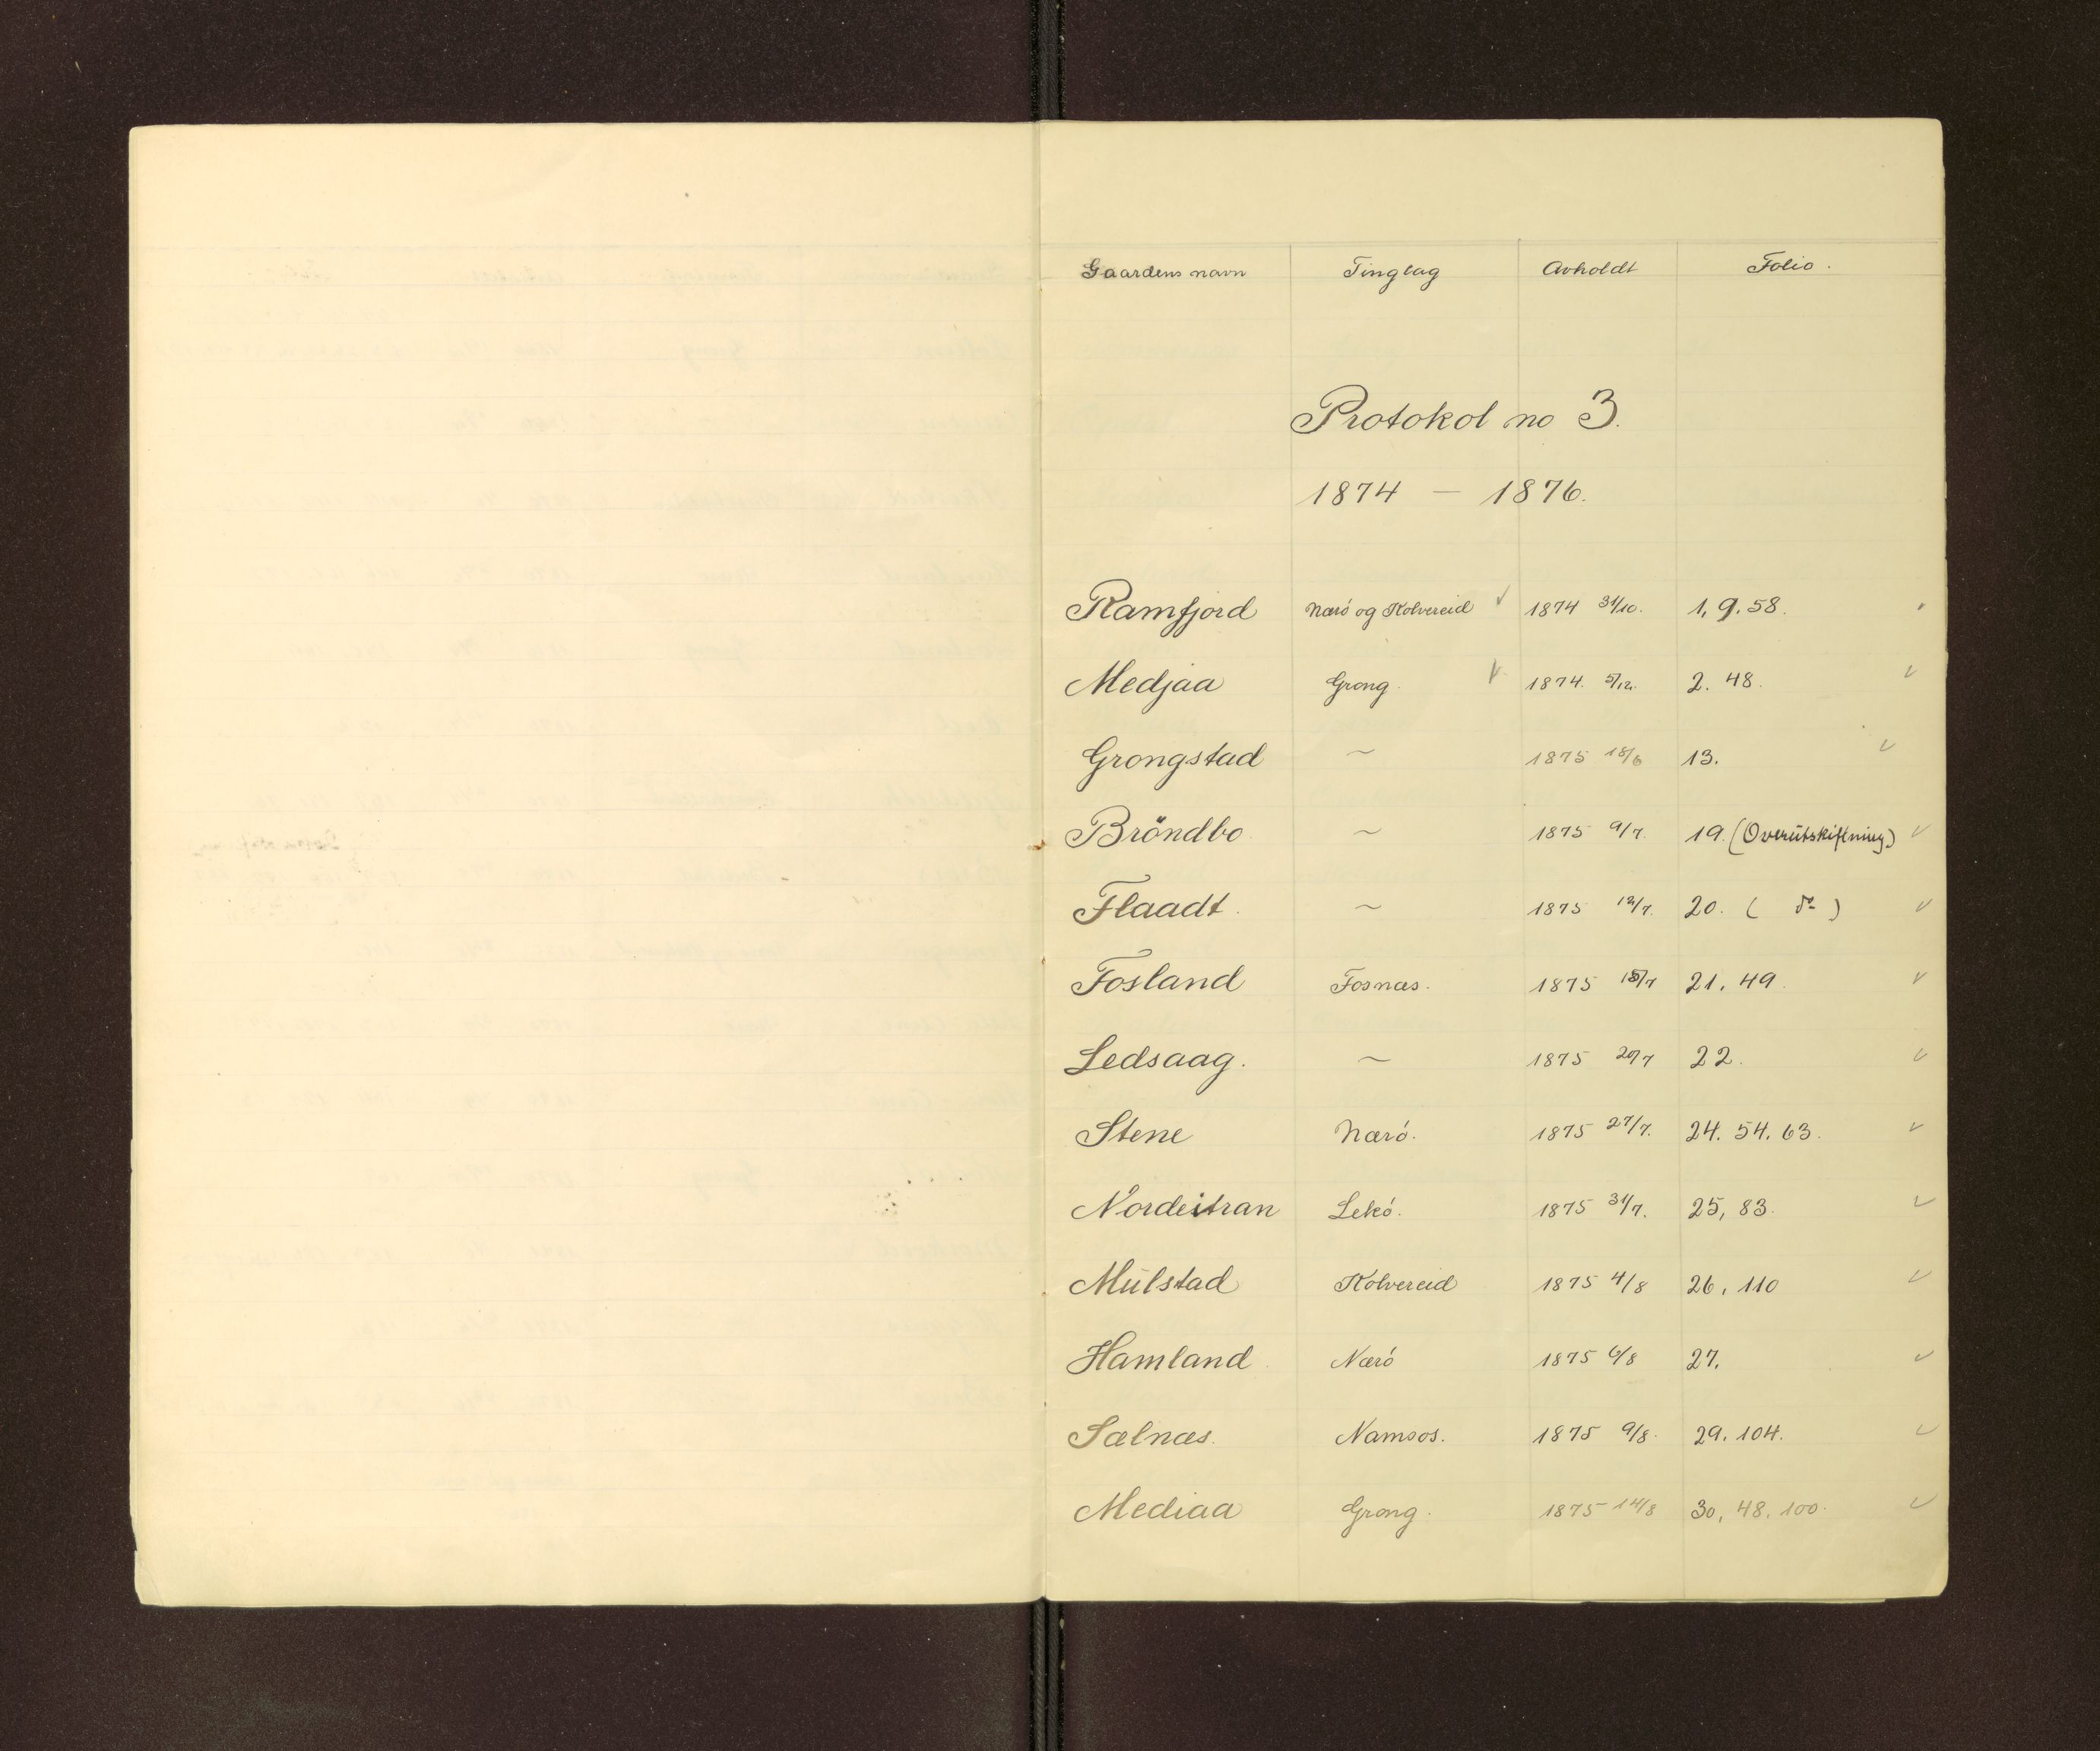 Gaardens navn Tinglag Avholdt Folio.
Protokol no 3.
1874 — 1876.
Ramfjord Nærö og Kolvereid ✓ 1874 31/10. 1, 9. 58.
Medjaa Grong. ✓ 1874. 5/12. 2. 48. ✓
Grongstad ~ 1875 18/6 13. ✓
Bröndbo ~ 1875 9/7. 19. (Overutskiftning) ✓
Flaadt. ~ 1875 12/7. 20. ( do ) ✓
Fosland Fosnæs. 1875 15/7 21. 49. ✓
Ledsaag. ~ 1875 20/7 22. ✓
Stene Nærö. 1875 27/7. 24. 54. 63. ✓
Nordeitran Lekö. 1875 31/7. 25, 83. ✓
Mülstad Kolvereid 1875 4/8 26, 110 ✓
Hamland Nærö 1875 6/8 27. ✓
Sælnæs. Namsos. 1875 9/8. 29. 104. ✓
Mediaa Grong. 1875 14/8 30, 48. 100. ✓